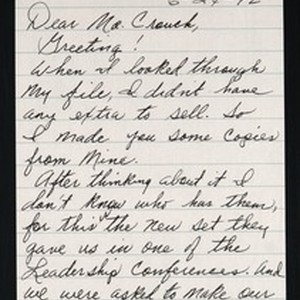 6-24-92
Dear Ms. Crouch,
Greeting!
When I looked through
My file, I didn't have
any extra to sell. So
I made you some copies
from Mine.
After thinking about it I
don't know who has them,
for this the new set they
gave us in one of the
Leadership Conferences. And
we were asked to make our